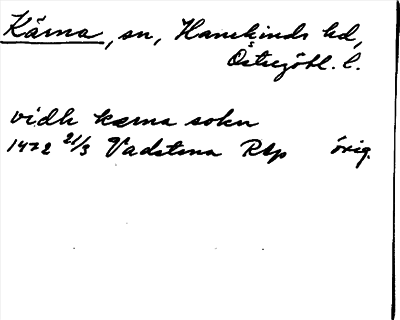 Kärna, sn, Hanekinds hd,
Östergötl. l.
vidh kærna sokn
1472 21/3 Vadstena RAp orig.